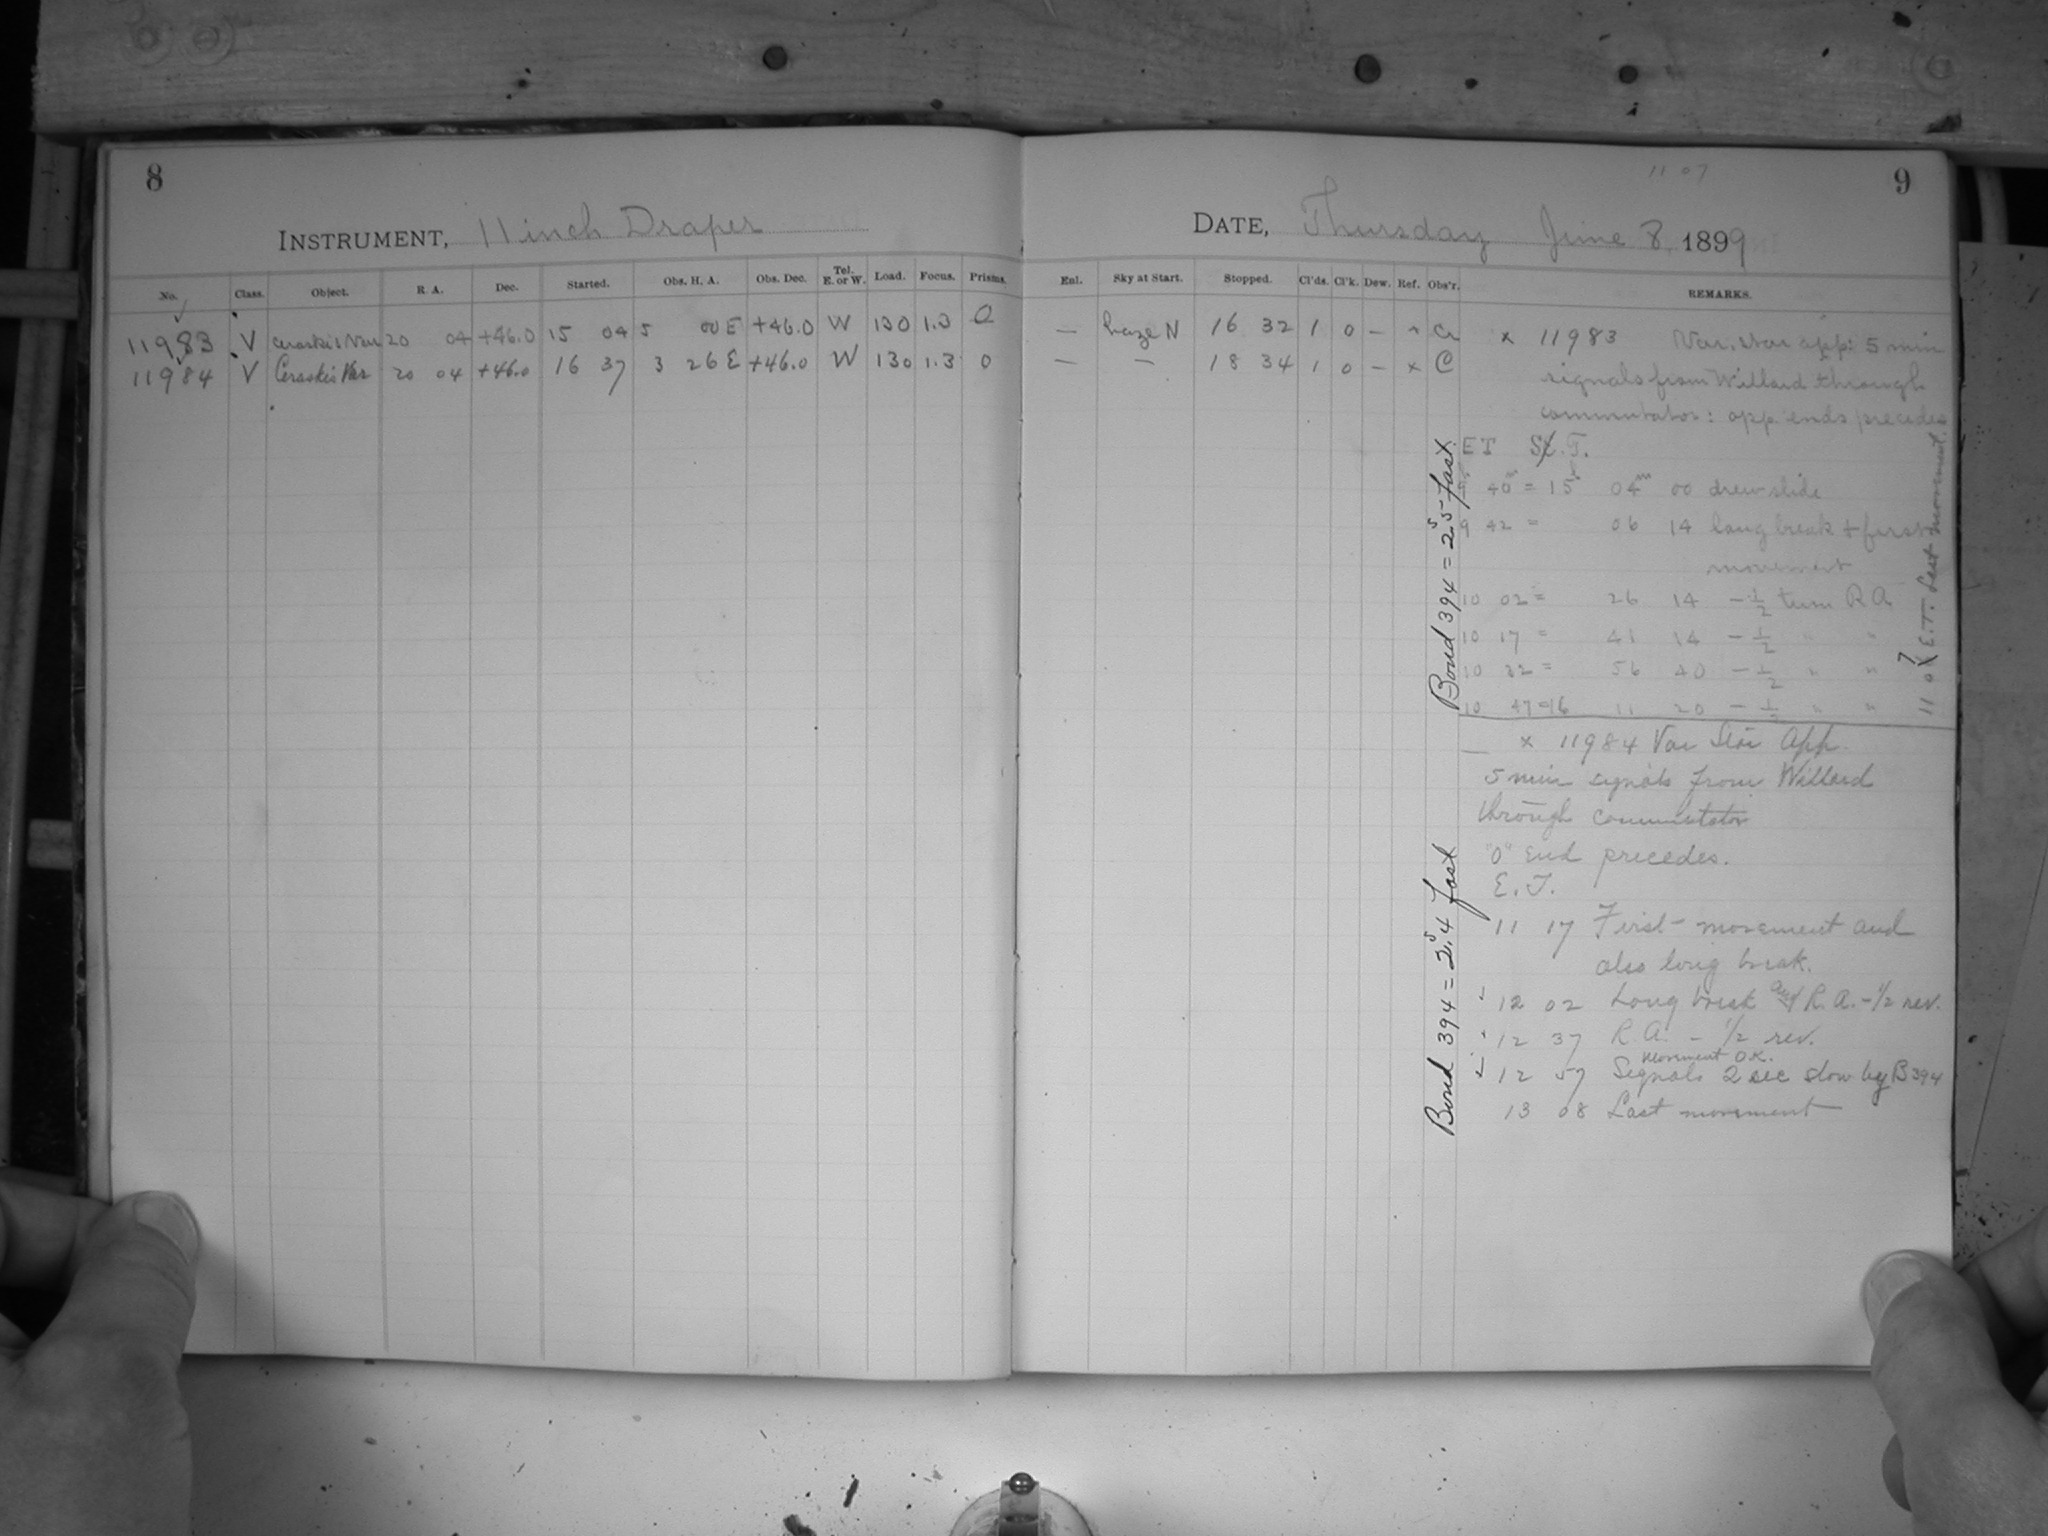 8
INSTRUMENT, 11 inch Draper
No. Class. Object. R. A. Dec. Started. Obs. H. A. Obs. Dec. Tel. E. or W. Load. Focus. Prisms.
11983 V Ceraskis Var 20 04 +46.0 15 04 5 00 E +46.0 W 130 1.3 0
11984 V Ceraskis Var 20 04 +46.0 16 37 3 26 E +46.0 W 130 1.3 0
11 07
9
DATE, Thursday June 8 1899
Enl. Sky at Start. Stopped. Cl'ds. Cl'k. Dew. Ref. Obs'r. REMARKS.
— haze N 16 32 1 0 — x
— — 18 34 1 0 — x C
x 11983 Var. star app: 5 min
signals from Willard through
commutator: opp. ends precedes
ET S.T.
9h 40m = 15h 04m 00 drew slide
9 42 = 06 14 long break + first
movement
10 02 = 26 14 - 1/2 turn R A
10 17 = 41 14 - 1/2 " "
10 32 = 56 40 - 1/2 " "
10 47 = 16 11 20 - 1/2 " "
11 07 E.T. Last movement.
Bond 394 = 2s.5 fast.
x 11984 Var Star App.
5 min signals from Willard
through commutator
"0" End precedes.
E. T.
11 17 First movement and
also long break.
12 02 Long break and R. A. - 1/2 rev.
12 37 R. A. - 1/2 rev.
movement O.K.
12 57 Signals 2 sec slow by B 394
13 08 Last movement
Bond 394 = 2s.4 fast